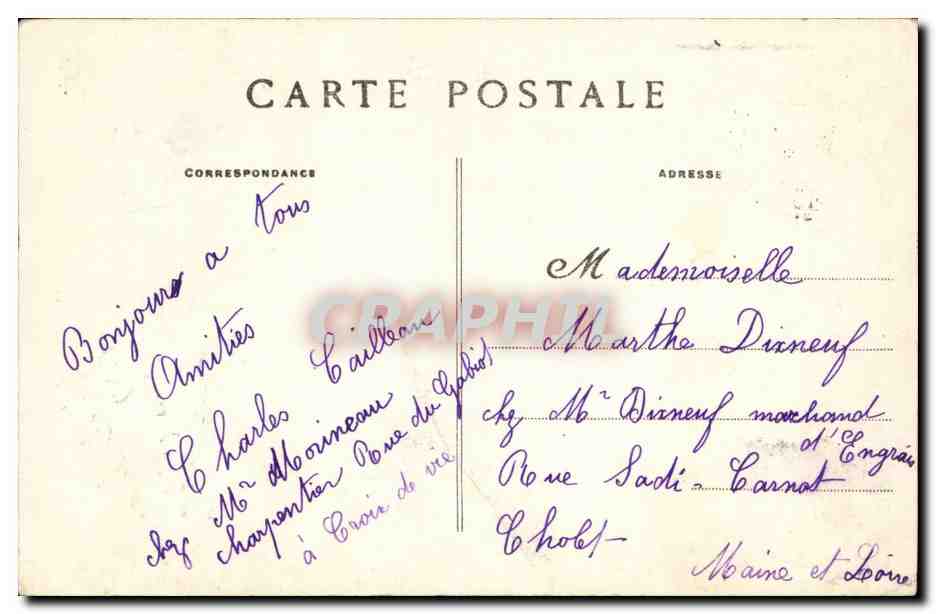 CARTE POSTALE
CORRESPONDANCE
Bonjour a tous
Amitiés
Charles Cailleau
chez Mr Moineau
charpentier Rue du Gabiot
à Croix de vie
ADRESSE
Mademoiselle
Marthe Dixneuf
chez Mr Dixneuf marchand
d'Engrais
Rue Sadi-Carnot
Cholet
Maine et Loire
CPAPHIL